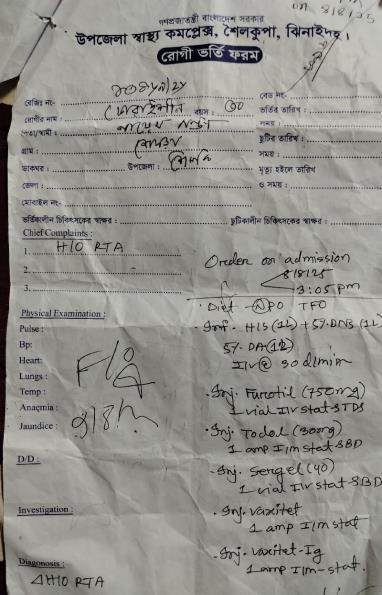 on 8/8/25
গণপ্রজাতন্ত্রী বাংলাদেশ সরকার
উপজেলা স্বাস্থ্য কমপ্লেক্স, শৈলকুপা, ঝিনাইদহ।
রোগী ভর্তি ফরম
রেজিঃ নং-
বেড নং-
রোগীর নাম : বয়স :
ভর্তির তারিখ :
পিতা/স্বামী :
সময় :
গ্রাম :
ছুটির তারিখ :
ডাকঘর : উপজেলা :
সময় :
জেলা :
মৃত্যু হইলে তারিখ
ও সময় :
মোবাইল নং-
ভর্তিকালীন চিকিৎসকের স্বাক্ষর :
ছুটিকালীন চিকিৎসকের স্বাক্ষর :
Chief Complaints :
1. H/O RTA
2.
3.
Order on admission
8/8/25
3:05 pm
Physical Examination :
Pulse :
Bp:
Heart:
Lungs :
Temp :
Anaçmia :
Jaundice :
D/D :
Investigation :
Diagonosis :
H/O RTA
Diet - NPO TFO
Inf. H/S (1L) + 5% DNS (1L
5% DA (1L)
I/V @ 30 d/min
Inj. Furotil (750mg)
1 vial I/v stat & TDS
Inj. Todol (30mg)
1 amp I/m stat & BD
Inj. Sergel (40)
1 vial I/v stat & BD
Inj. Vaxitet
1 amp I/m stat
Inj. Vaxitet-Ig
1 amp I/m - stat.